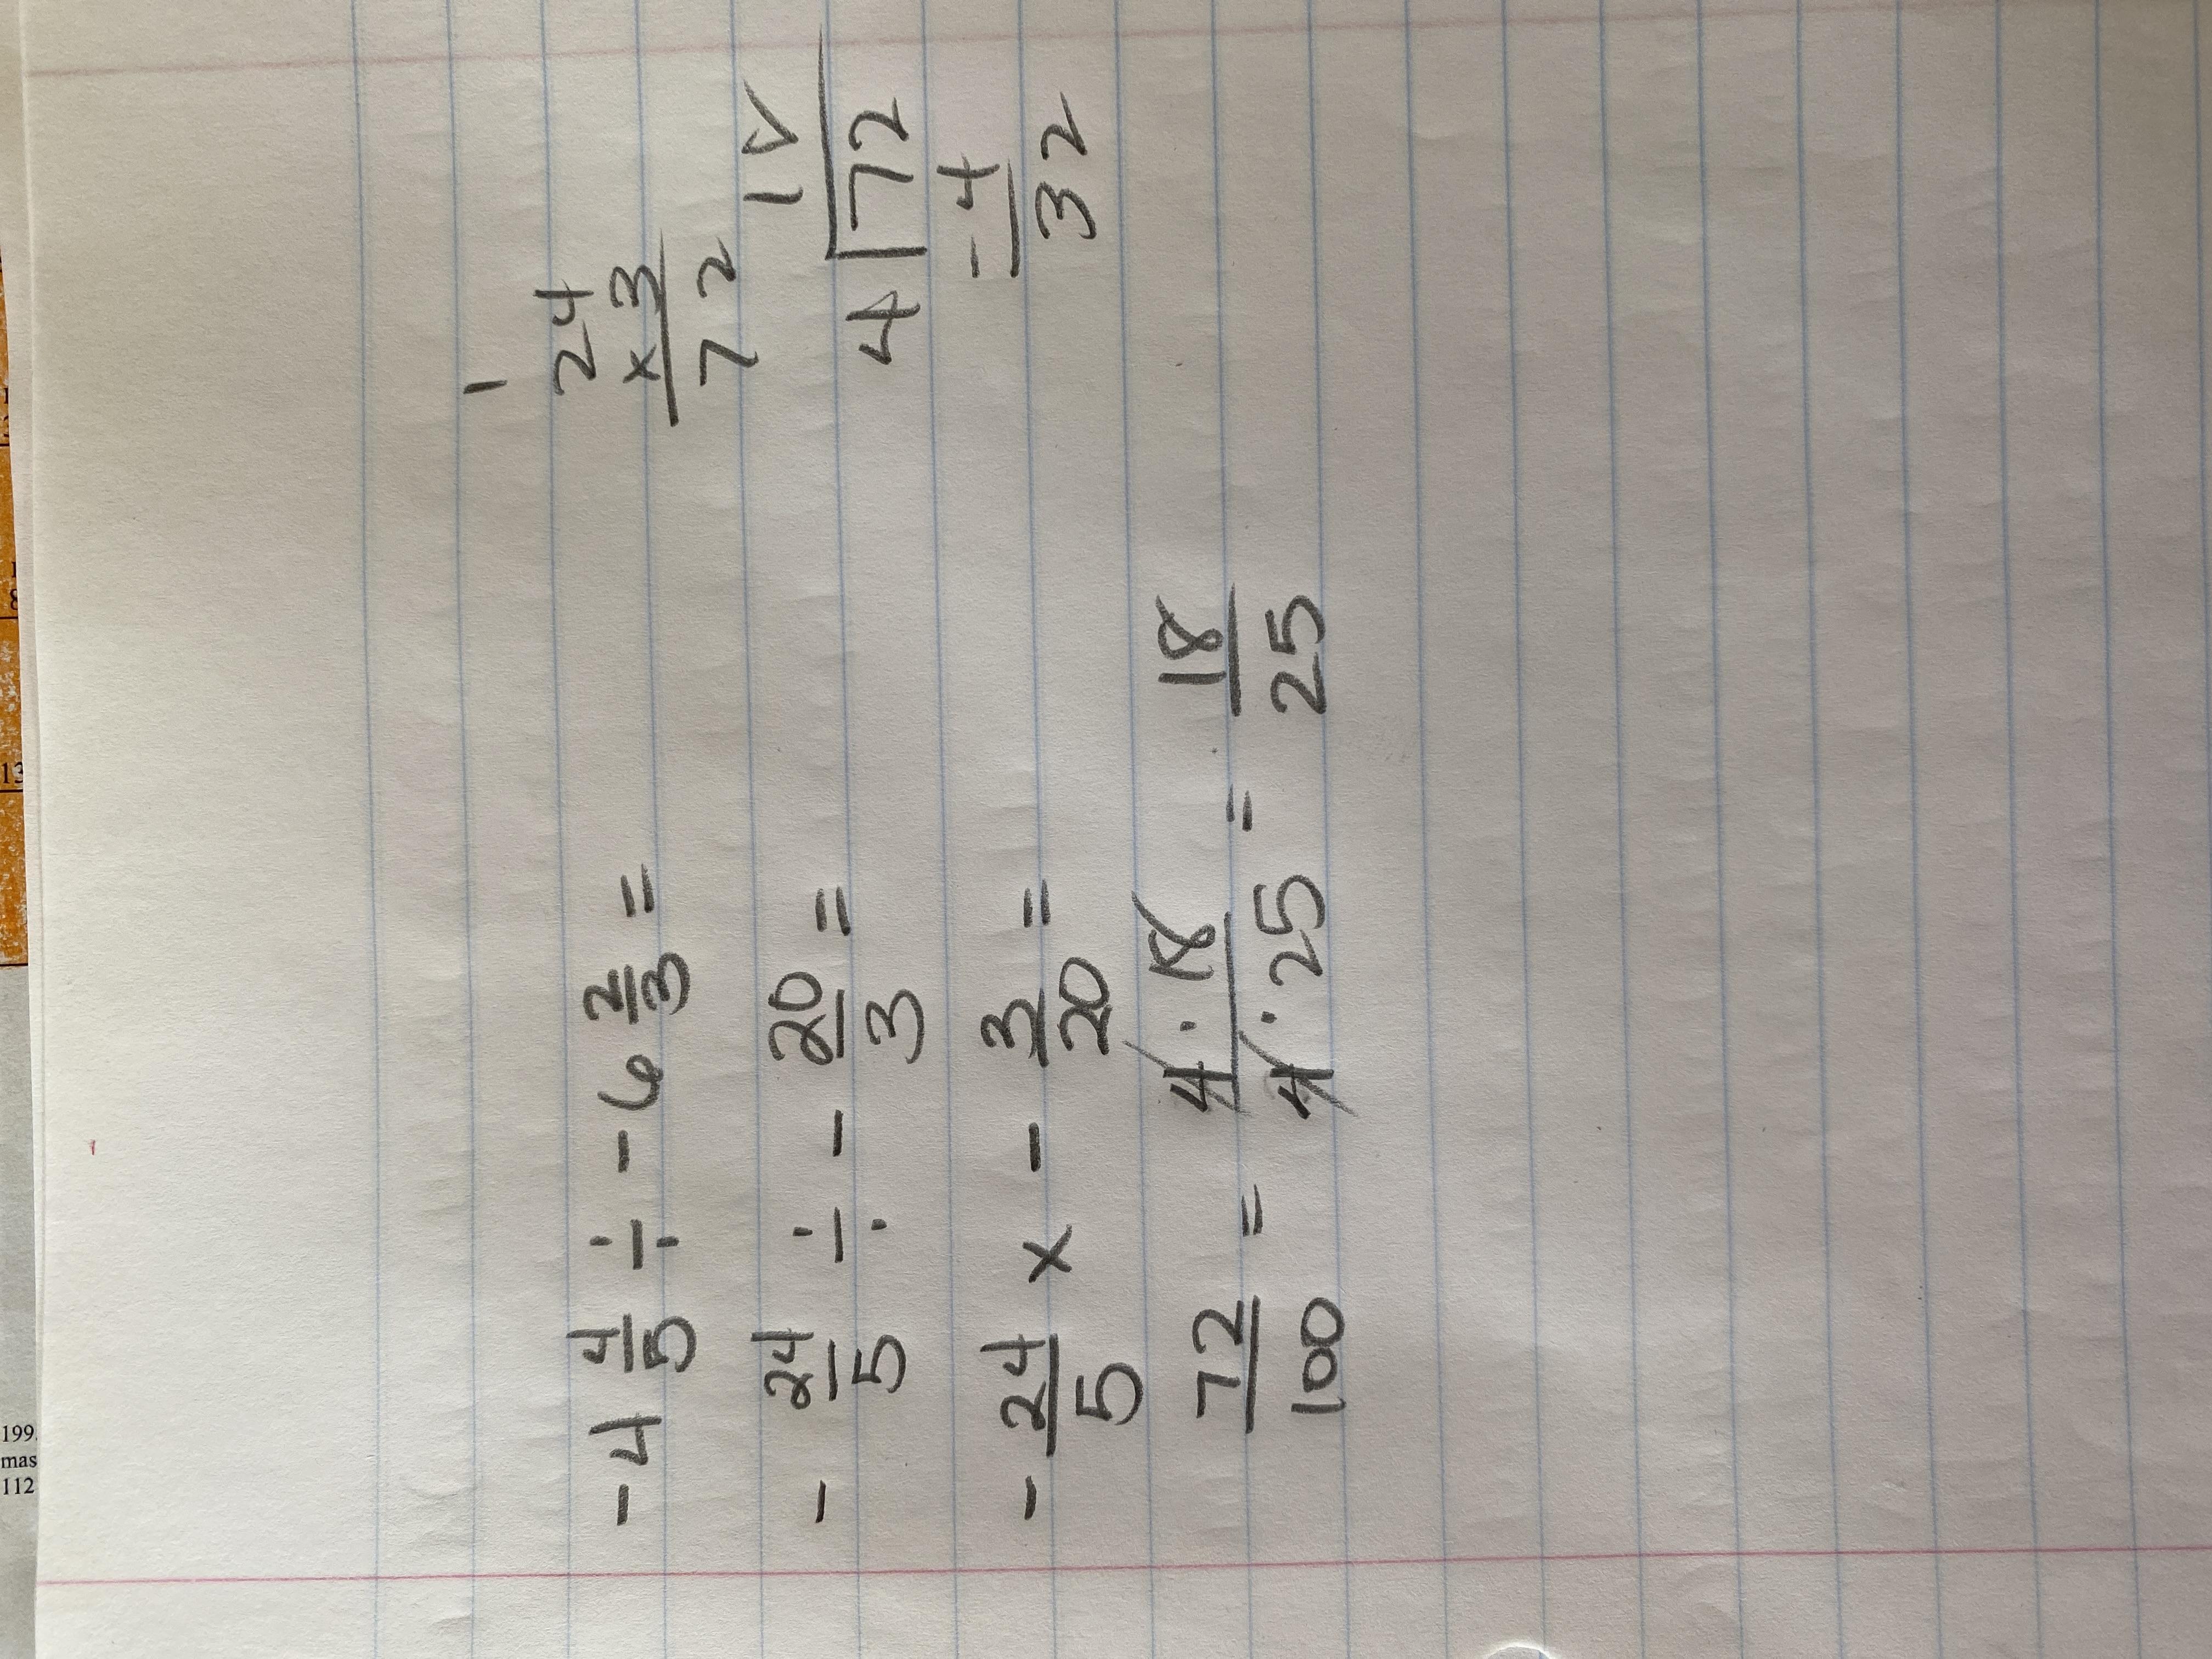 -4 4/5 ÷ -6 2/3 =
- 24/5 ÷ - 20/3 =
- 24/5 x - 3/20 =
72/100 = 4·18/4·25 = 18/25
1
24
x3
72
18
4)72
-4
32
199
mas
112
13
8